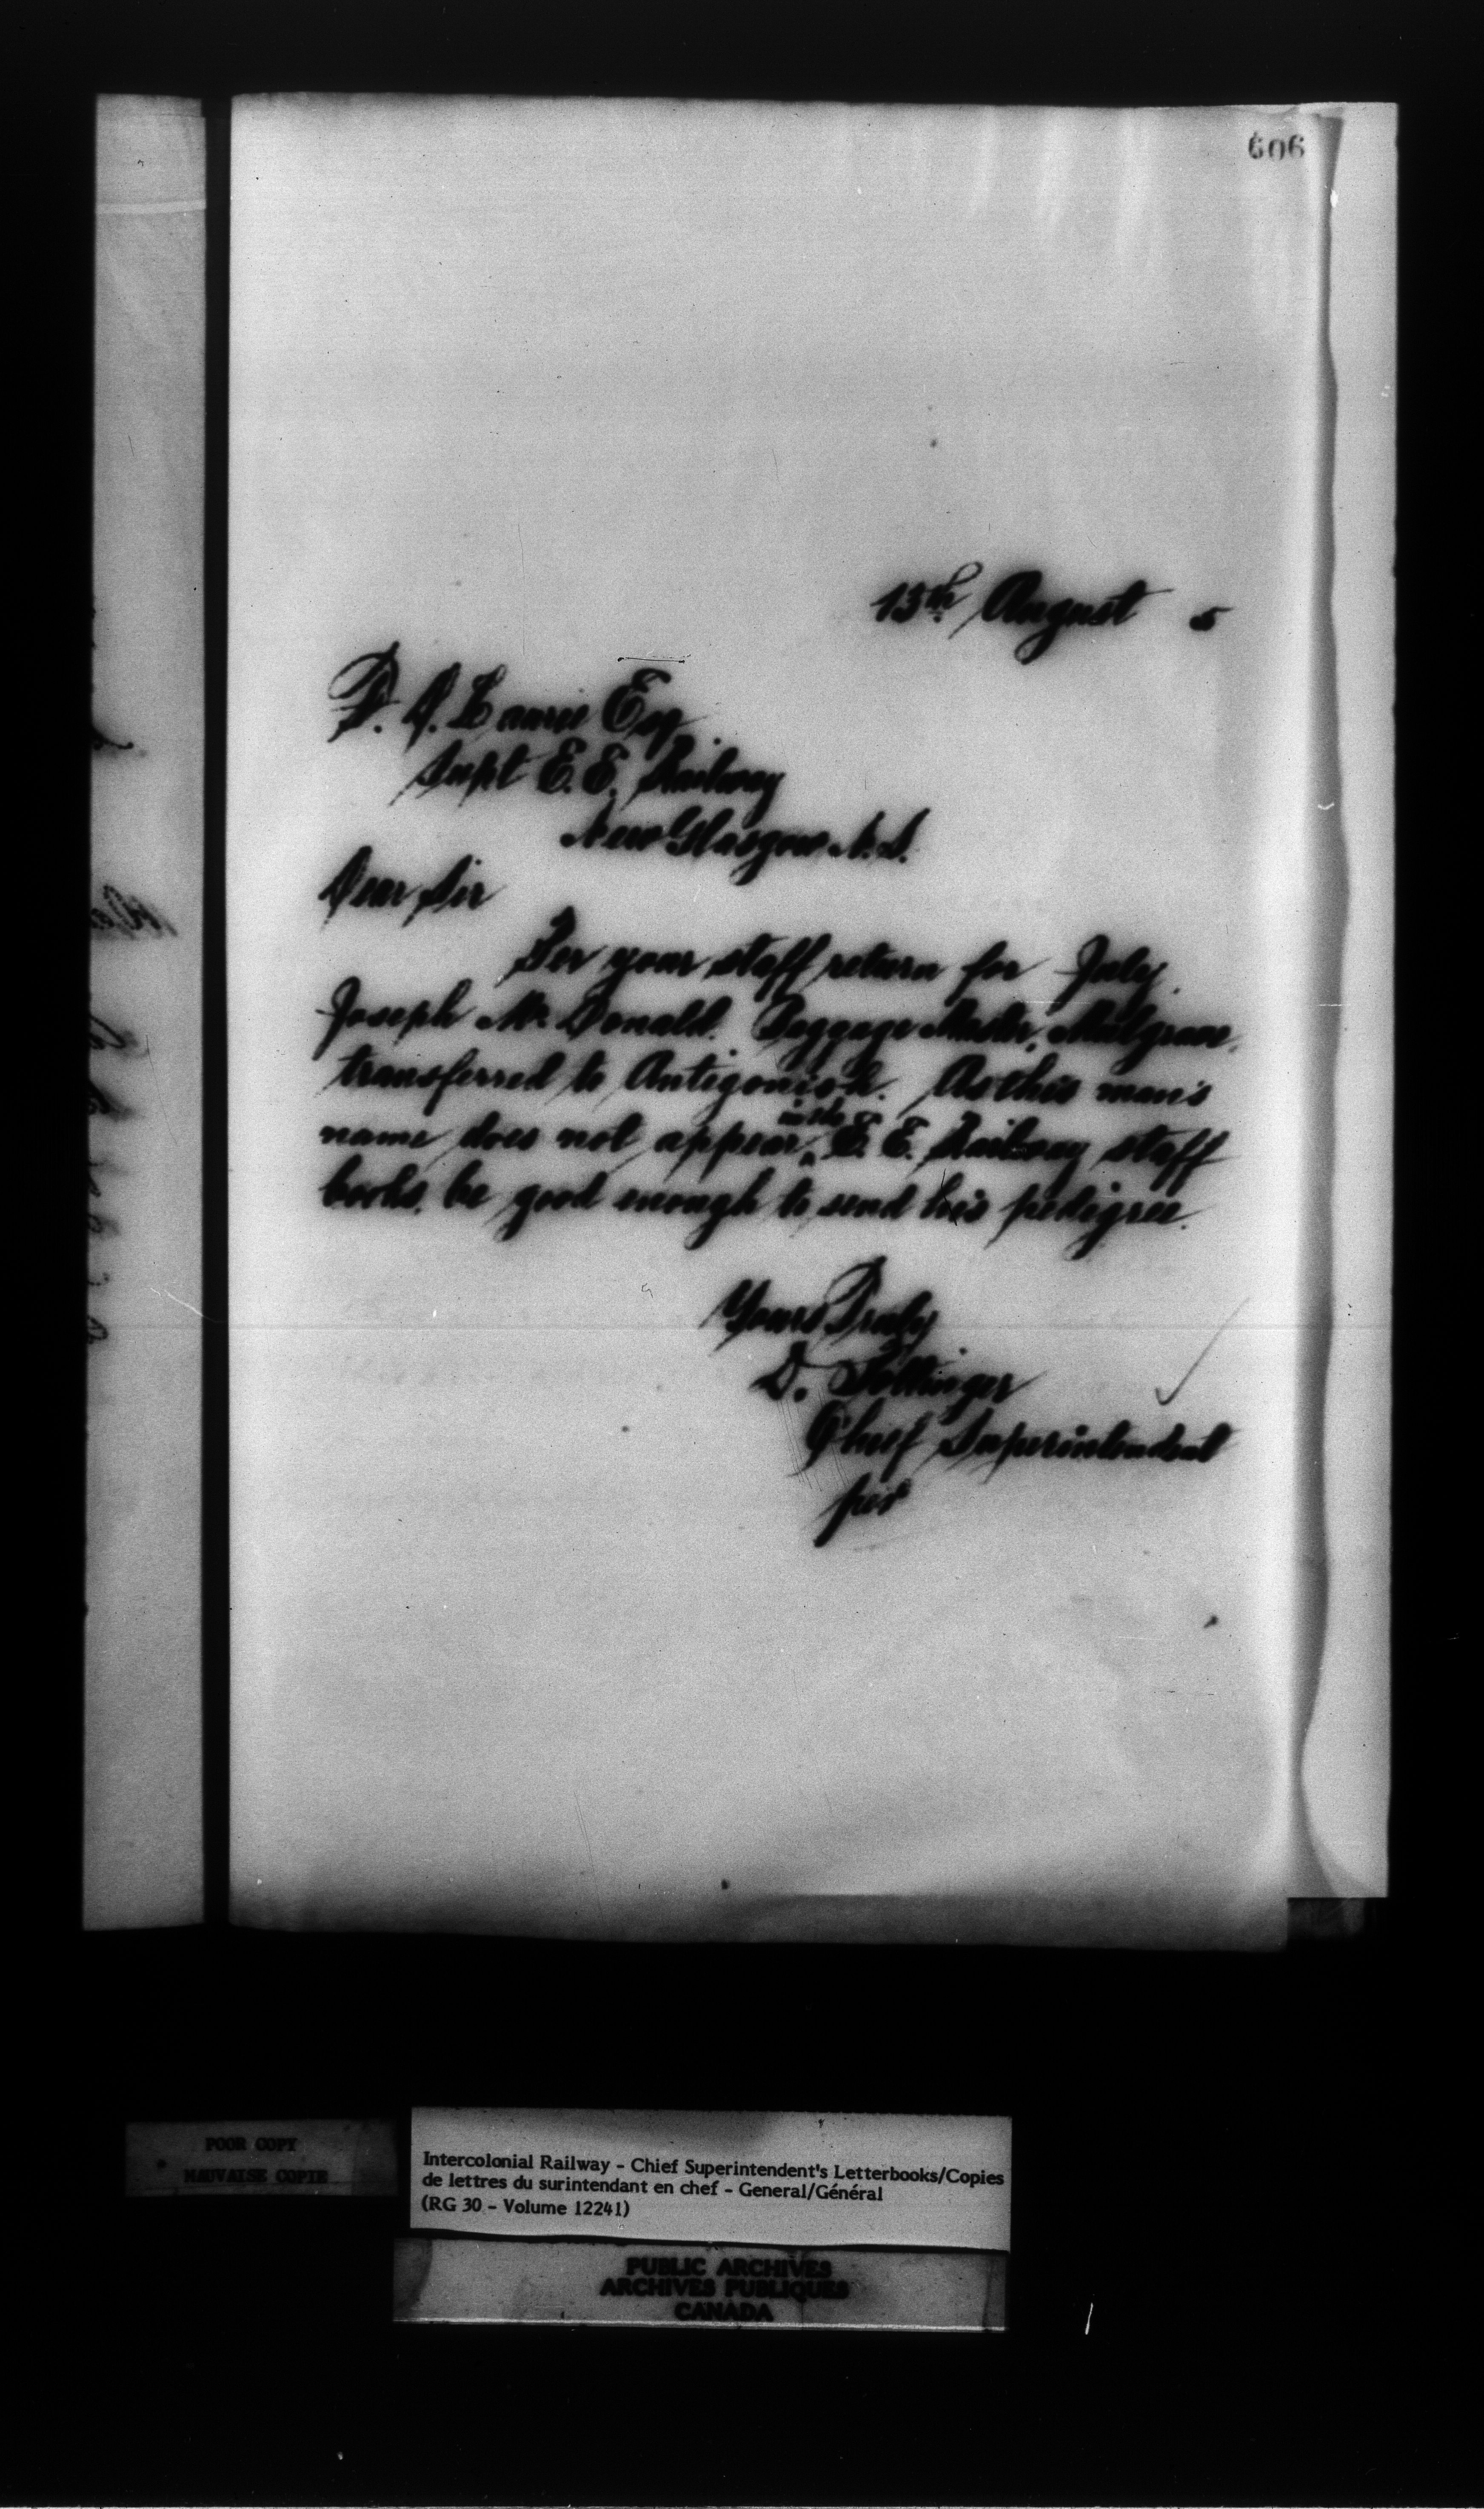 606
13th August 5
P. S. Laurie Esq
Supt E. E. Railway
New Glasgow N.S.
Dear Sir
Per your staff return for July
Joseph McDonald. Baggage Master, Mulgrave,
transferred to Antigonish. As this man's
name does not appear in the E. E. Railway staff
books, be good enough to send his pedigree.
Yours Truly
D. Pottinger
Chief Superintendent
per
POOR COPY
MAUVAISE COPIE
Intercolonial Railway - Chief Superintendent's Letterbooks/Copies
de lettres du surintendant en chef - General/Général
(RG 30 - Volume 12241)
PUBLIC ARCHIVES
ARCHIVES PUBLIQUES
CANADA